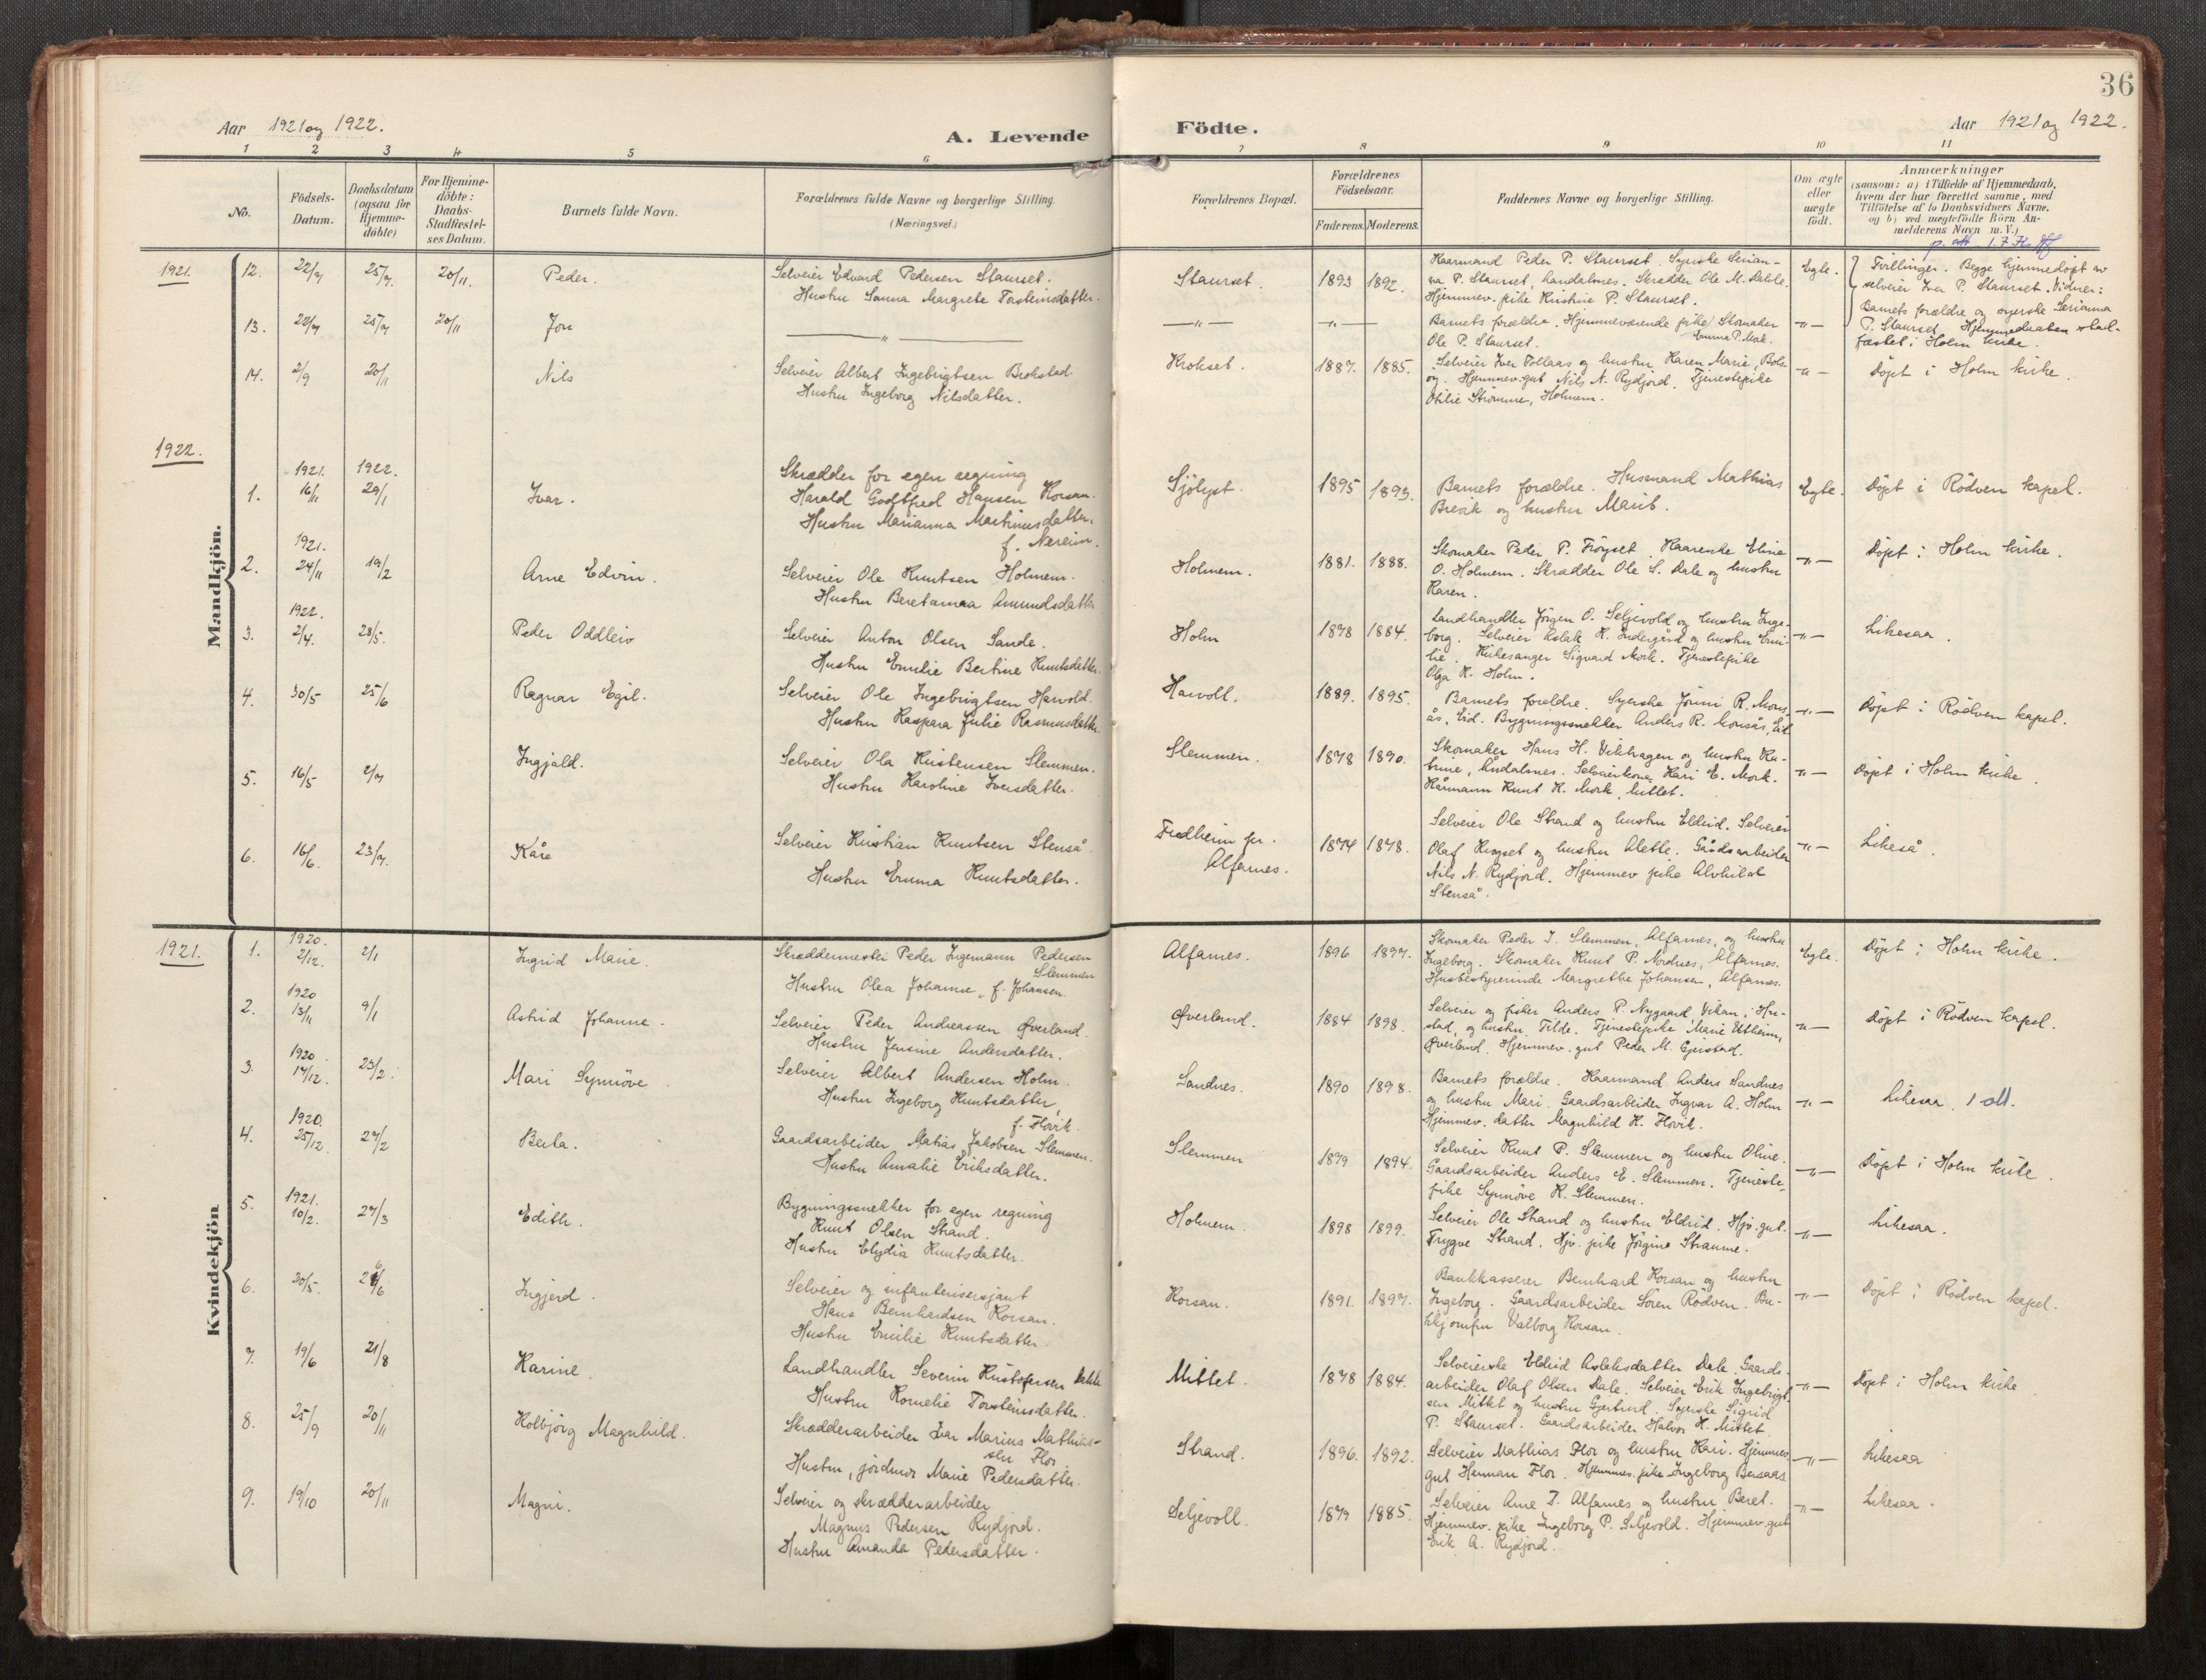 36
Aar 1921 og 1922.
A. Levende Födte.
Aar 1921 og 1922.
1 2 3 4 5 6 7 8 9 10 11
No.
Födsels-
Datum.
Daabsdatum
(ogsaa for
Hjemme-
döbte)
For Hjemme-
döbte:
Daabs-
Stadfæstel-
ses Datum.
Barnets fulde Navn.
Forældrenes fulde Navne og borgerlige Stilling.
(Næringsvei.)
Forældrenes Bopæl.
Forældrenes
Födselsaar.
Faderens. Moderens.
Faddernes Navne og borgerlige Stilling.
Om ægte
eller
uægte
födt.
Anmærkninger
(saasom: a) i Tilfælde af Hjemmedaab,
hvem der har forrettet samme, med
Tilföielse af to Daabsvidners Navne.
og b) ved uegtefödte Börn An-
melderens Navn m. V.)
Mandkjön.
1921.
12. 22/7 25/7. 20/11. Peder.
Selveier Edvard Pedersen Staurset.
Hustru Sanna Margrete Torsteinsdatter.
Staurset. 1893 1892.
Haarmand Peder P. Staurset. Syerske Serian-
na P. Staurset, Aandalsnes. Skrædder Ole M. Dahle.
Hjemmev. pike Kristine P. Staurset.
Egte.
Tvillinger. Begge hjemmedöpt av
selveier Iver P. Staurset. Vidner:
Barnets forældre og syerske Serianna
P. Staurset. Hjemmedaaben stad-
fæstet i Holm kirke.
13. 22/7 25/7 20/11 Jon
—„—
—„— —„—
Barnets forældre. Hjemmeværende pike Emma P. Mork. Skomaker
Ole P. Staurset.
—„—
14. 2/9 20/11 Nils
Selveier Albert Ingebrigtsen Brokstad
Hustru Ingeborg Nilsdatter.
Krokset. 1887. 1885.
Selveier Iver Vollaas og hustru Karen Marie, Bols-
öy. Hjemmev. gut Nils N. Rydjord. Tjenestepike
Otilie Strömme, Holmem.
—„— Döpt i Holm kirke.
1922.
1. 1921. 16/11 1922. 29/1 Ivar.
Skrædder for egen regning
Harald Godtfred Hansen Korsan.
Hustru Marianna Martinusdatter,
f. Nereim.
Sjölyst. 1895 1893.
Barnets forældre. Husmand Mathias
Brevik og hustru Marit.
Egte. Döpt i Rödven kapel.
2. 1921. 24/11 19/2 Arne Edvin.
Selveier Ole Knutsen Holmem.
Hustru Beretanna Amundsdatter
Holmem. 1881. 1888.
Skomaker Peder P. Fröyset. Kaarenke Eline
O. Holmem. Skrædder Ole S. Dale og hustru
Karen.
—„— Döpt i Holm kirke.
3. 1922. 2/4. 28/5. Peder Oddleiv
Selveier Anton Olsen Sande.
Hustru Emilie Bertine Knutsdatter.
Holm 1878 1884.
Landhandler Jörgen O. Seljevold og hustru Inge-
borg. Selveier Aslak K. Indergård og hustru Emi-
lie. Kirkesanger Sigvard Mork. Tjenestepike
Olga K. Holm.
—„— Likesaa.
4. 30/5 25/6 Ragnar Egil.
Selveier Ole Ingebrigtsen Harvold.
Hustru Kaspara Julie Rasmusdatter.
Harvoll. 1889. 1895.
Barnets foreldre. Syerske Jönni R. Mons-
ås, Eid. Bygningssnekker Anders R. Monsås, Eid
—„— Döpt i Rödven kapel.
5. 16/5 2/7 Ingjald.
Selveier Ola Kristensen Slemmen.
Hustru Karoline Iversdatter.
Slemmen. 1878 1890.
Skomaker Hans H. Vikhagen og hustru Ka-
trine, Åndalsnes. Selveierkone Kari E. Mork.
Kårmann Knut K. Mork, Mittet.
—„— Döpt i Holm kirke.
6. 16/6. 23/7. Kåre
Selveier Kristian Knutsen Stenså.
Hustru Emma Knutsdatter.
Fredheim pr.
Alfarnes.
1874 1878.
Selveier Ole Strand og hustru Eldrid. Selveier
Olaf Krogset og hustru Alette. Gårdsarbeider
Nils N. Rydjord. Hjemmev pike Alvhild
Stenså.
—„— Likeså.
Kvindekjön
1921.
1. 1920. 2/12. 2/1 Ingrid Marie.
Skræddermester Peder Ingemann Pedersen
Slemmen
Hustru Olea Johanne, f. Johansen.
Alfarnes. 1896 1897.
Skomaker Peder I. Slemmen, Alfarnes, og hustru
Ingeborg. Skomaker Knut P. Nordnes, Alfarnes.
Husbestyrerinde Margrethe Johansen, Alfarnes.
Egte. Döpt i Holm kirke.
2. 1920 13/11 9/1 Astrid Johanne.
Selveier Peder Andreassen Øverland.
Hustru Jensine Andersdatter.
Øverland. 1884 1898.
Selveier og fisker Anders P. Nygaard Vikan, Hu-
stad, og hustru Tilde. Tjenestepike Marie Utheim,
Øverland. Hjemmev. gut Peder M. Gjerstad.
—„— Döpt i Rödven kapel.
3. 1920. 17/12. 23/2. Mari Synnöve.
Selveier Albert Andersen Holm.
Hustru Ingeborg Knutsdatter,
f. Flovik.
Sandnes. 1890 1898.
Barnets forældre. Kaarmand Anders Sandnes
og hustru Mari. Gaardsarbeider Ingvar A. Holm
Hjemmev. datter Magnhild K. Flovik.
—„— Likesaa.
4. 1920. 25/12. 27/2 Berla.
Gaardsarbeider Matias Jakobsen Slemmen.
Hustru Amalie Eriksdatter.
Slemmen 1879 1894.
Selveier Knut P. Slemmen og hustru Oline.
Gaardsarbeider Anders E. Slemmen. Tjeneste-
pike Synnöve K. Slemmen.
—„— Döpt i Holm kirke.
5. 1921. 10/2. 27/3 Edith.
Bygningssnekker for egen regning
Knut Olsen Strand.
Hustru Elydia Knutsdatter.
Holmem. 1898 1899.
Selveier Ole Strand og hustru Eldrid. Hjv. gut.
Trygve Strand. Hjv. pike Jörgine Straume.
—„— Likesaa.
6. 20/5. 26/6 Ingjerd.
Selveier og infanterisersjant
Hans Bernhardsen Korsan.
Hustru Emilie Knutsdatter.
Korsan. 1891. 1897.
Bankkasserer Bernhard Korsan og hustru
Ingeborg. Gaardsarbeider Sören Rödven. Bu-
tikjomfru Valborg Korsan.
—„— Döpt i Rödven kapel.
7. 19/6 21/8 Karine.
Landhandler Severin Kristofersen Dahle
Hustru Kornelie Torsteinsdatter.
Mittet. 1878 1884.
Selveierske Eldrid Aslaksdatter Dale. Gaards-
arbeider Olaf Olsen Dale. Selveier Erik Ingebrigt-
sen Mittet og hustru Gjertrud. Syerske Sigrid
P. Staurset. Gaardsarbeider Halvor K. Mittet.
—„— Döpt i Holm kirke
8. 25/9 20/11 Kolbjörg Magnhild.
Skrædderarbeider Ivar Marius Mathias-
sen Flor
Hustru, jordmor Marie Pedersdatter.
Strand. 1896. 1892.
Selveier Mathias Flor og hustru Kari. Hjemmev.
gut Herman Flor. Hjemmev. pike Ingeborg Bersaas
—„— Likesaa
9. 19/10 20/11 Magni.
Selveier og skrædderarbeider
Magnus Pedersen Rydjord.
Hustru Amanda Pedersdatter.
Seljevoll. 1879 1885.
Selveier Arne I. Alfarnes og hustru Beret.
Hjemmev. pike Ingeborg P. Seljevold. Hjemmev. gut
Erik A. Rydjord.
—„— Likesaa.